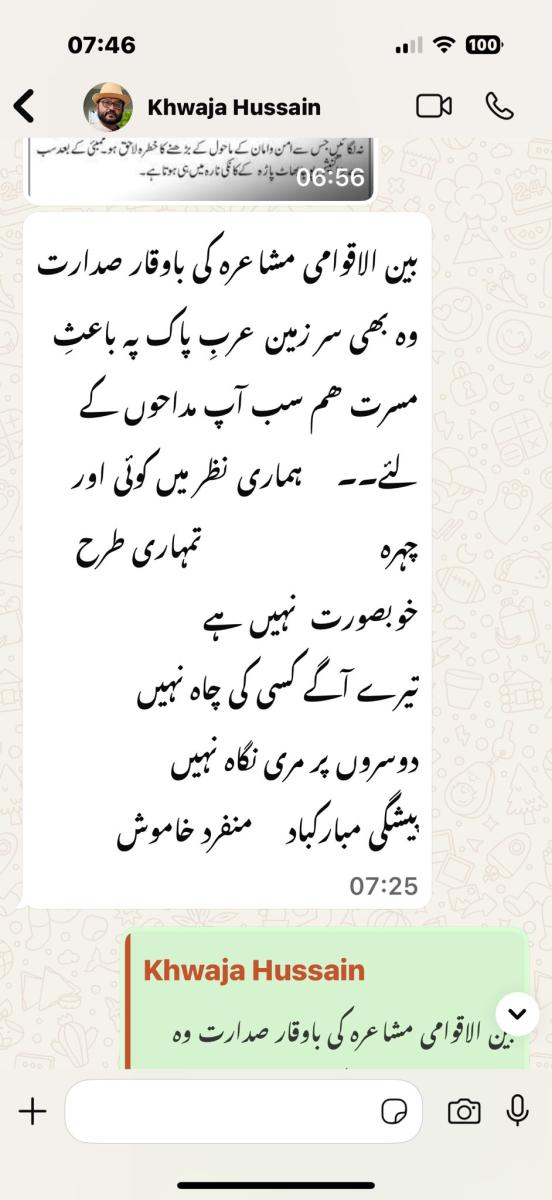 07:46
100
Khwaja Hussain
نہ لگائیں جس سے امن وامان کے ماحول کے بڑھنے کا خطرہ لاحق ہو۔ ممبئی کے بعد سب
پاڑہ کے کانکی نارہ میں ہی ہوتا ہے۔
06:56
بین الاقوامی مشاعرہ کی باوقار صدارت
وہ بھی سر زمین عربِ پاک پہ باعثِ
مسرت ھم سب آپ مداحوں کے
لئے۔۔ ہماری نظر میں کوئی اور
چہرہ تمہاری طرح
خوبصورت نہیں ہے
تیرے آگے کسی کی چاہ نہیں
دوسروں پر مری نگاہ نہیں
پیشگی مبارکباد منفرد خاموش
07:25
Khwaja Hussain
بین الاقوامی مشاعرہ کی باوقار صدارت وہ